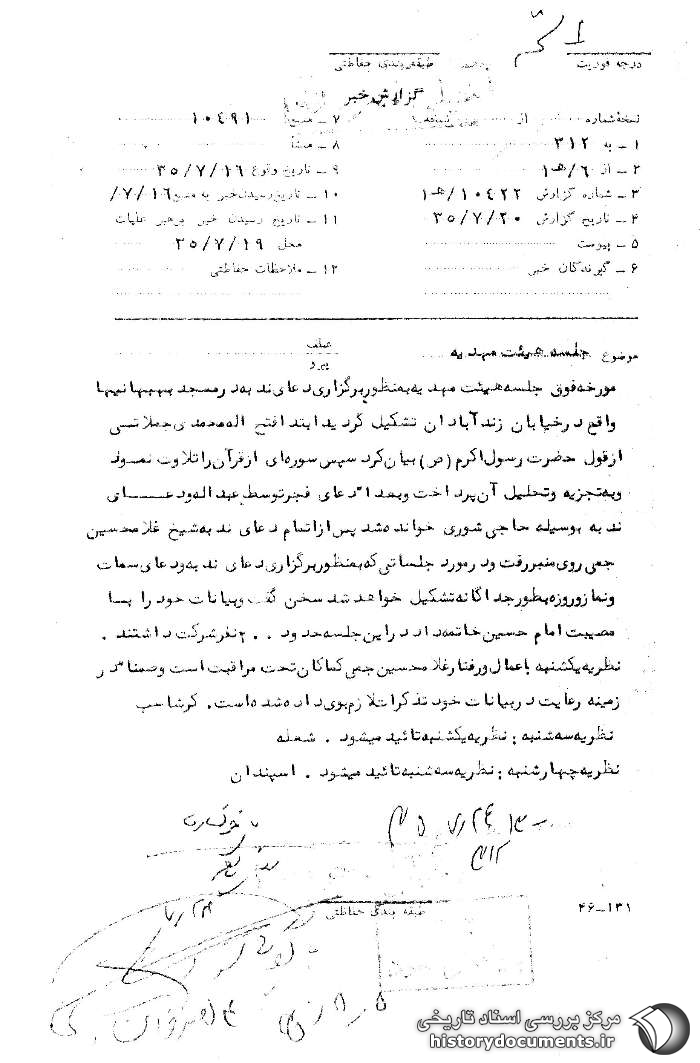 درجه فوریت طبقه‌بندی حفاظتی
گزارش خبر
نسخهٔ شماره از ۷ ـ منبع ۱۰۴۹۱
۱ ـ به ۳۱۲ ۸ ـ منشأ
۲ ـ از ۶/هـ۱ ۹ ـ تاریخ وقوع ۳۵/۷/۱۶
۳ ـ شماره گزارش ۱۰۴۲۲/هـ۱ ۱۰ ـ تاریخ رسیدن خبر به منبع ۷/۱۶/
۴ ـ تاریخ گزارش ۳۵/۷/۲۰ ۱۱ ـ تاریخ رسیدن خبر برهبر عملیات
۵ ـ پیوست محل ۲۵/۷/۱۹
۶ ـ گیرندگان خبر ۱۲ ـ ملاحظات حفاظتی
موضوع جلسه هیئت مهدیه عطف
پیرو
مورخه فوق جلسه هیئت مهدیه به منظور برگزاری دعای ندبه در مسجد بهبهانیها
واقع در خیابان زند آبادان تشکیل گردید ابتدا فتح اله محمدی
از قول حضرت رسول اکرم (ص) بیان کرد سپس سوره‌ای از قرآن را تلاوت نمود
و به تجزیه و تحلیل آن پرداخت و بعداً دعای فجر توسط عبداله و دعای
ندبه بوسیله حاجی شوری خوانده شد پس از اتمام دعای ندبه شیخ غلامحسین
جمی روی منبر رفت و در مورد جلساتی که به منظور برگزاری دعای ندبه و دعای سمات
و نماز و روزه بطور جداگانه تشکیل خواهد شد سخن گفت و بیانات خود را با
مصیبت امام حسین خاتمه داد در این جلسه حدود نفر شرکت داشتند .
نظریه یکشنبه با عمال و رفتار غلامحسین جمی کماکان تحت مراقبت است و ضمناً در
زمینه رعایت در بیانات خود تذکرات لازم بوی داده شده است . گرشاسب
نظریه سه‌شنبه : نظریه یکشنبه تائید میشود . شعله
نظریه چهارشنبه : نظریه سه‌شنبه تائید میشود . اسپندان
۳۱۲
طبقه بندی حفاظتی ۱۳۱-۴۶
مرکز بررسی اسناد تاریخی
historydocuments.ir